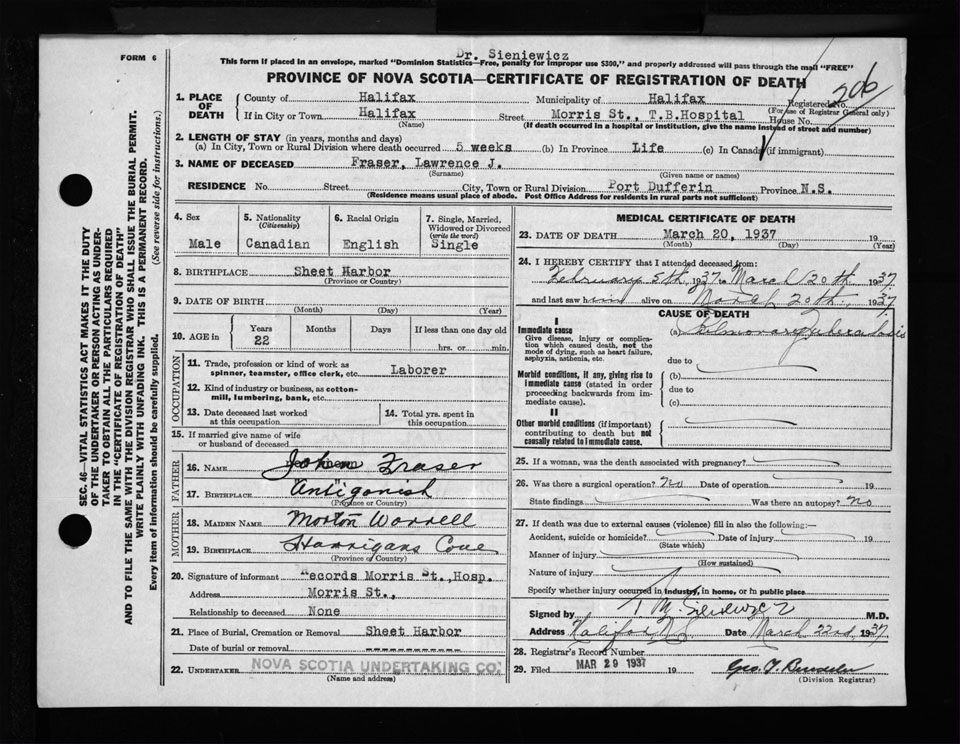 FORM 6
Dr. Sieniewicz
This form if placed in an envelope, marked "Dominion Statistics—Free, penalty for improper use $300," and properly addressed will pass through the mail "FREE"
PROVINCE OF NOVA SCOTIA—CERTIFICATE OF REGISTRATION OF DEATH
206
1. PLACE OF DEATH
County of Halifax Municipality of Halifax Registered No.
(For use of Registrar General only)
If in City or Town Halifax Street Morris St., T.B.Hospital House No.
(Name) (If death occurred in a hospital or institution, give the name instead of street and number)
2. LENGTH OF STAY (in years, months and days)
(a) In City, Town or Rural Division where death occurred 5 weeks (b) In Province Life (c) In Canada (if immigrant)
3. NAME OF DECEASED Fraser, Lawrence J.
(Surname) (Given name or names)
RESIDENCE No. Street City, Town or Rural Division Port Dufferin Province N.S.
(Residence means usual place of abode. Post Office Address for residents in rural parts not sufficient)
4. Sex Male
5. Nationality (Citizenship) Canadian
6. Racial Origin English
7. Single, Married, Widowed or Divorced (write the word) Single
8. BIRTHPLACE Sheet Harbor
(Province or Country)
9. DATE OF BIRTH
(Month) (Day) (Year)
10. AGE in Years 22 Months Days If less than one day old
hrs. or min.
OCCUPATION
11. Trade, profession or kind of work as spinner, teamster, office clerk, etc. Laborer
12. Kind of industry or business, as cotton-mill, lumbering, bank, etc.
13. Date deceased last worked at this occupation
14. Total yrs. spent in this occupation
15. If married give name of wife or husband of deceased
FATHER
16. NAME John Fraser
17. BIRTHPLACE Antigonish
(Province or Country)
MOTHER
18. MAIDEN NAME Morton Worrell
19. BIRTHPLACE Harrigans Cove
(Province or Country)
20. Signature of informant "ecords Morris St., Hosp.
Address Morris St.,
Relationship to deceased None
21. Place of Burial, Cremation or Removal Sheet Harbor
Date of burial or removal
22. UNDERTAKER NOVA SCOTIA UNDERTAKING CO.
(Name and address)
MEDICAL CERTIFICATE OF DEATH
23. DATE OF DEATH March 20, 1937 19
(Month) (Day) (Year)
24. I HEREBY CERTIFY that I attended deceased from:
February 5th 1937 to March 20th 1937
and last saw him alive on March 20th 1937
CAUSE OF DEATH
I
Immediate cause
Give disease, injury or complication which caused death, not the mode of dying, such as heart failure, asphyxia, asthenia, etc.
(a) Pulmonary Tuberculosis
due to
Morbid conditions, if any, giving rise to immediate cause (stated in order proceeding backwards from immediate cause).
(b)
due to
(c)
II
Other morbid conditions (if important) contributing to death but not causally related to immediate cause.
25. If a woman, was the death associated with pregnancy?
26. Was there a surgical operation? No Date of operation 19
State findings Was there an autopsy? No
27. If death was due to external causes (violence) fill in also the following:—
Accident, suicide or homicide? Date of injury 19
(State which)
Manner of injury
(How sustained)
Nature of injury
Specify whether injury occurred in industry, in home, or in public place
Signed by T M Sieniewicz M.D.
Address Halifax N.S. Date March 22nd 1937
28. Registrar's Record Number
29. Filed MAR 29 1937 19
(Division Registrar)
SEC. 46—VITAL STATISTICS ACT MAKES IT THE DUTY
OF THE UNDERTAKER OR PERSON ACTING AS UNDER-
TAKER TO OBTAIN ALL THE PARTICULARS REQUIRED
IN THE "CERTIFICATE OF REGISTRATION OF DEATH"
AND TO FILE THE SAME WITH THE DIVISION REGISTRAR WHO SHALL ISSUE THE BURIAL PERMIT.
WRITE PLAINLY WITH UNFADING INK. THIS IS A PERMANENT RECORD.
Every item of information should be carefully supplied. (See reverse side for instructions.)